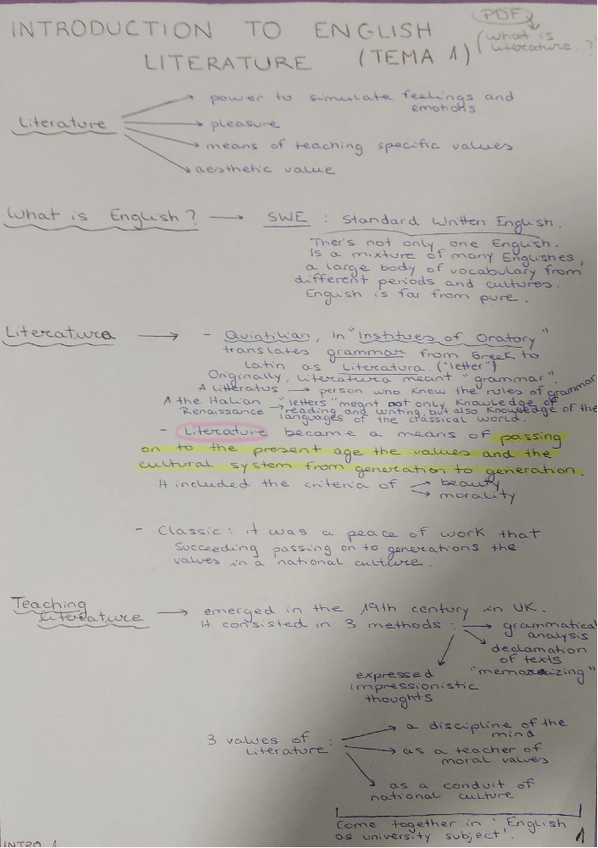 INTRODUCTION TO ENGLISH
LITERATURE (TEMA 1)
PDF
(what is
literature...?)
Literature
→ power to simulate feelings and
emotions
→ pleasure
→ means of teaching specific values
→ aesthetic value
What is English? → SWE : Standard Written English.
Ther's not only one English.
Is a mixture of many Englishes,
a large body of vocabulary from
different periods and cultures.
English is far from pure.
Literatura → - Quintilian, in "Institues of Oratory"
translates grammar from Greek to
Latin as Literatura. ("letter")
Originally, literatura meant "grammar".
A litteratus → person who knew the rules of grammar
A the Italian Renaissance → "letters" meant not only knowledge of
reading and writing, but also knowledge of the
languages of the classical world.
- Literature became a means of passing
on to the present age the values and the
cultural system from generation to generation.
It included the criteria of → beauty
→ morality
- Classic: it was a peace of work that
succeeding passing on to generations the
values in a national culture.
Teaching
literature → emerged in the 19th century in UK.
It consisted in 3 methods : → grammatical
analysis
→ declamation
of texts
"memorizing"
expressed
impressionistic
thoughts
3 values of
literature:
→ a discipline of the
mind
→ as a teacher of
moral values
→ as a conduit of
national culture
Come together in: 'English
as university subject'.
INTRO 1
1